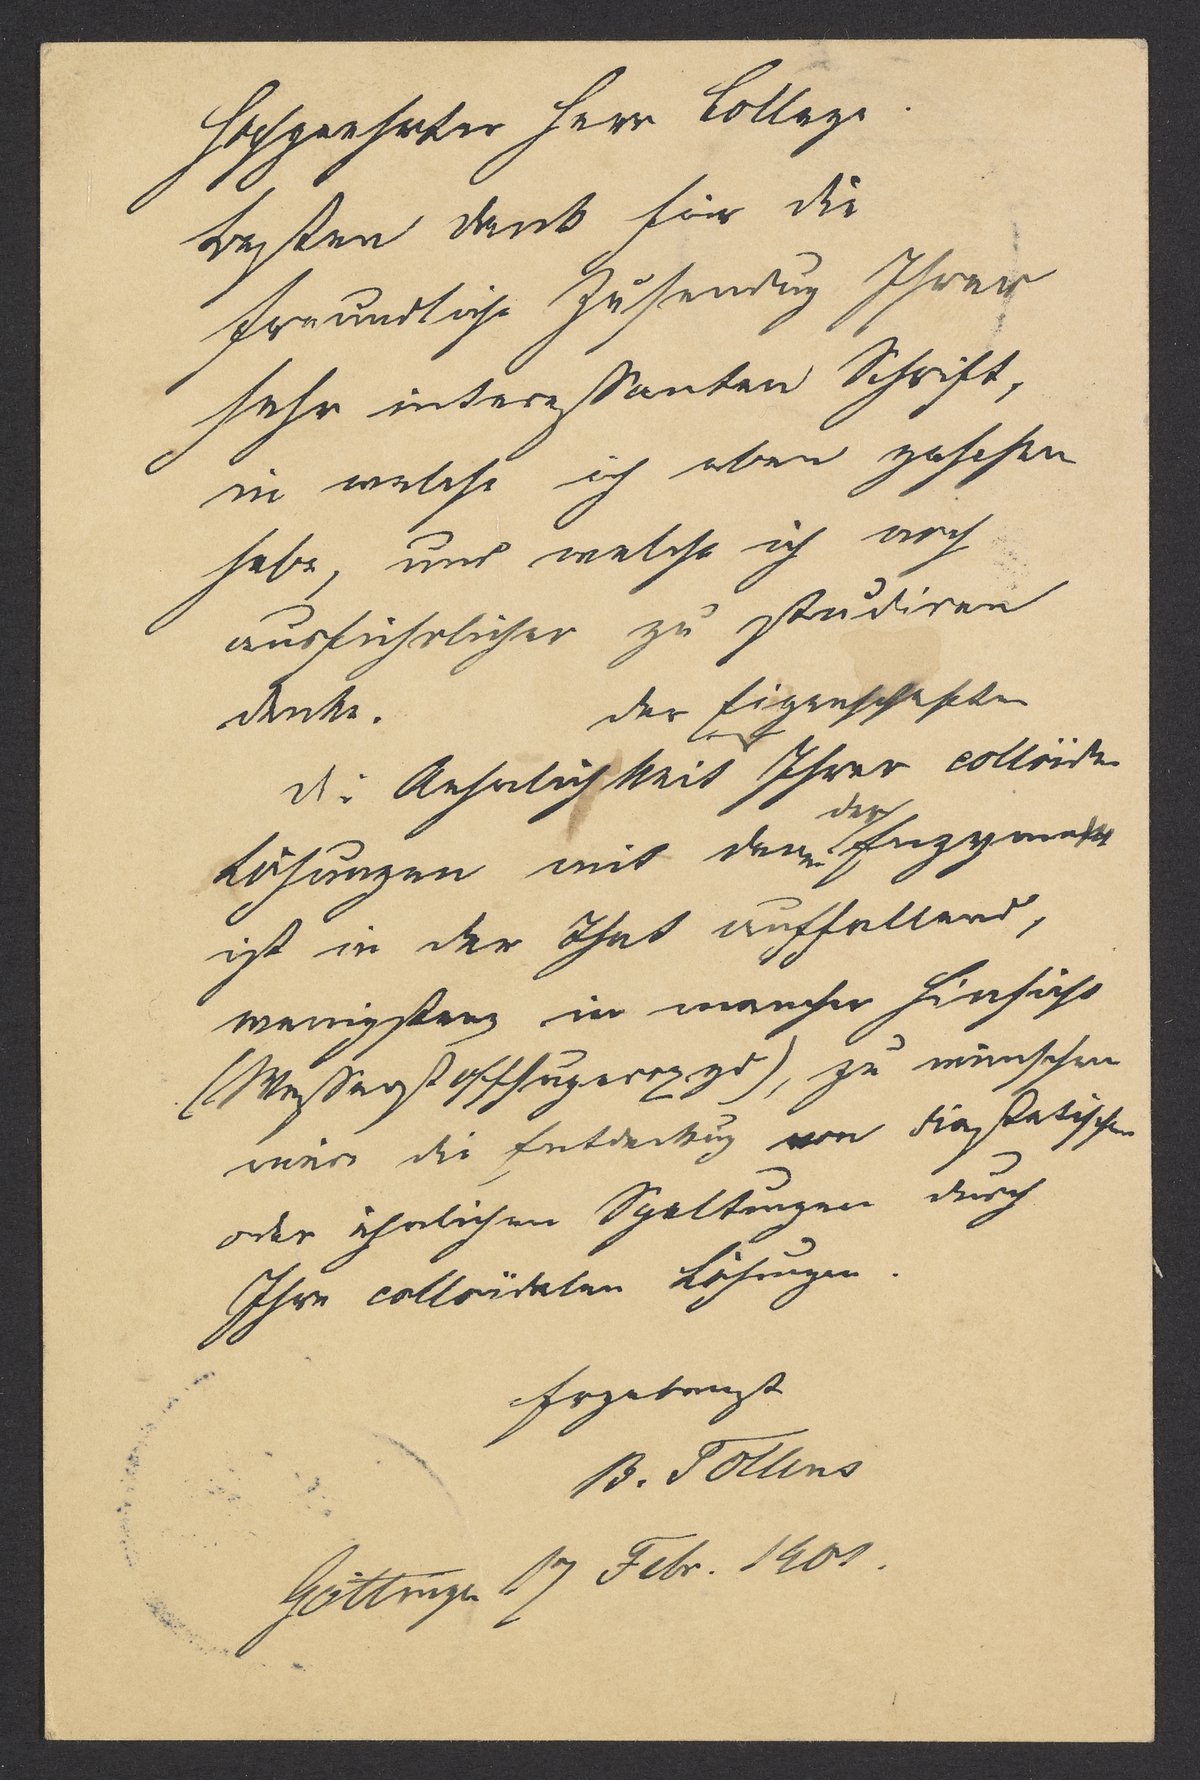 Hochgeehrter Herr College.
besten Dank für die
freundliche Zusendung Ihrer
sehr interessanten Schrift,
in welche ich eben gesehen
habe, und welche ich noch
ausführlicher zu studiren
denke.
der Eigenschaften
Die Aehnlichkeit Ihrer colloidalen
der
Lösungen mit denen Enzyme
ist in der That auffallend,
wenigstens in mancher Hinsicht
(Wasserstoffsuperoxyd), zu wünschen
wäre die Entdeckung von diastatischen
oder ähnlichen Spaltungen durch
Ihre colloidalen Lösungen.
Ergebenst
B. Tollens
Göttingen 17 Febr. 1901.